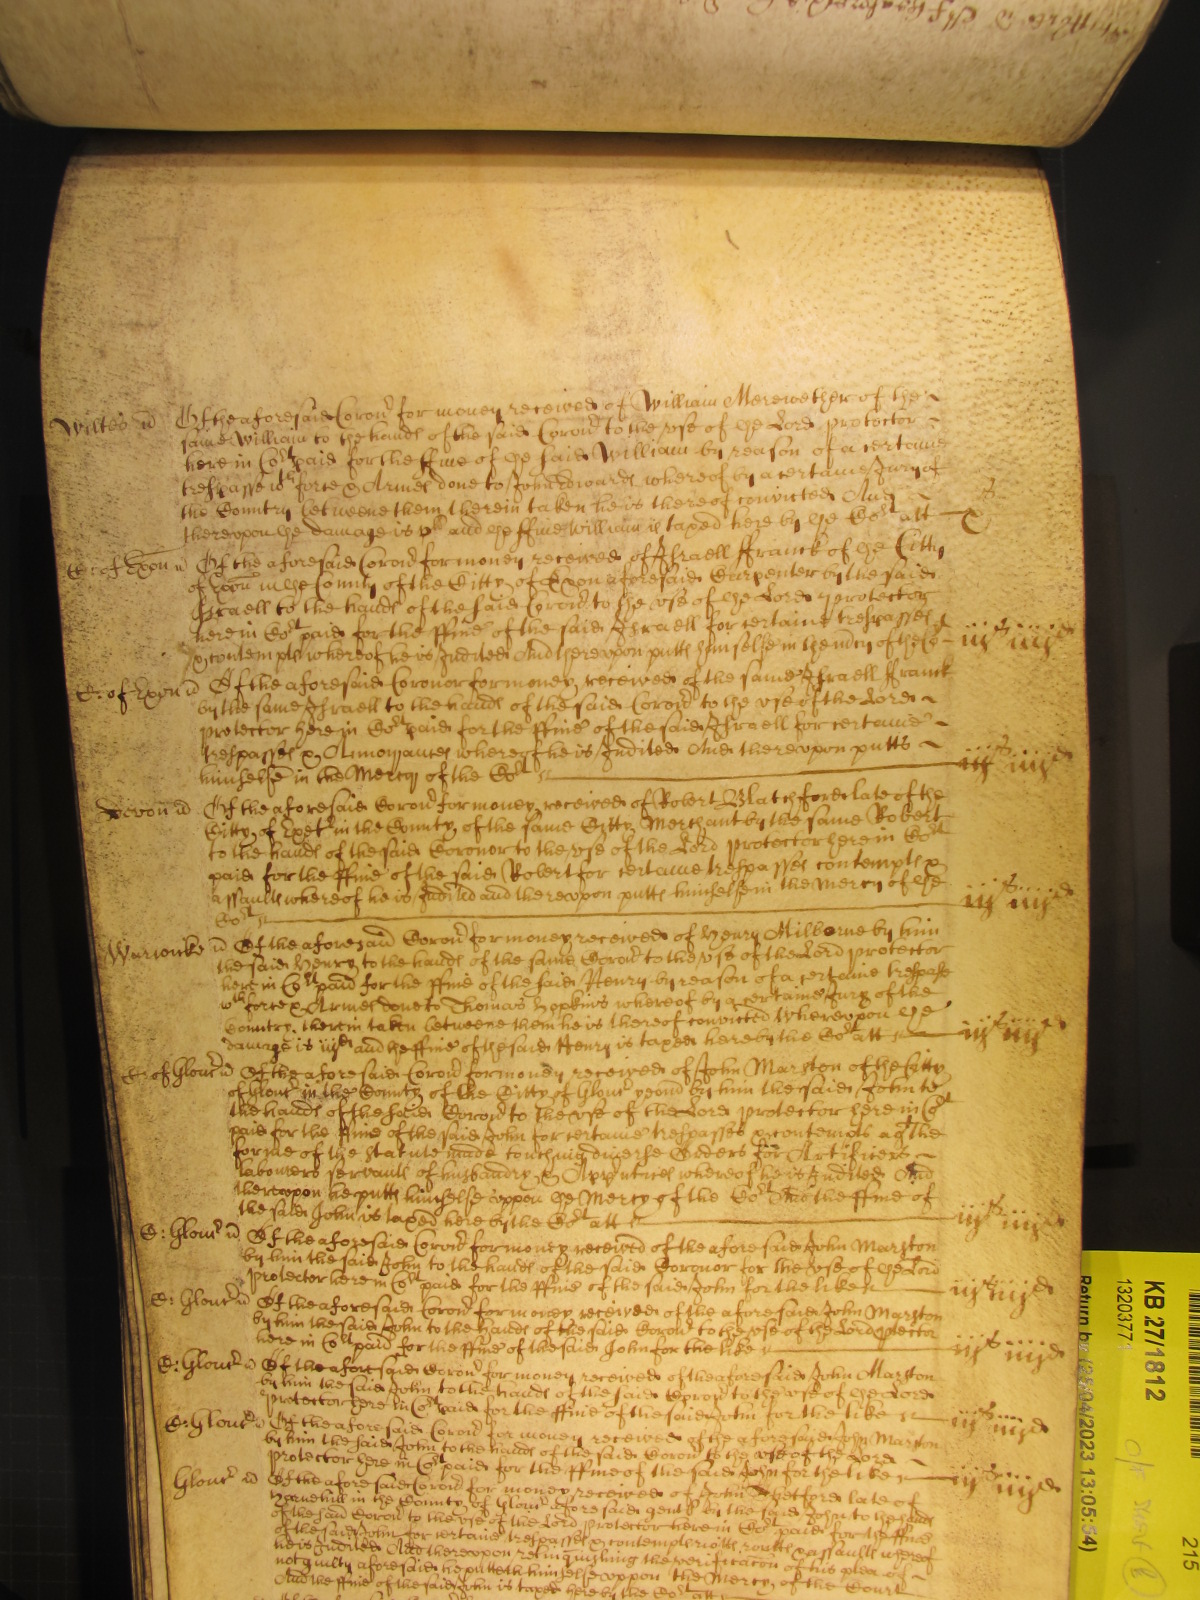 Wiltes ss Of the aforesaid Coron' for money received of William Merewether of the
same William to the hands of the said Coron' to the use of the Lord protector
here in Co't paid for the ffine of the said William by reason of a certaine
trespasse wth force & Armes done to John Edwards whereof by a certaine Jury of
the Country betweene them therein taken he is thereof convicted And
thereupon the damage is and the ffine William is taxed here by the Co't att x s
C: of Exon ss Of the aforesaid Coron' for money received of Israell Ffranck of the Citty
of Exon in the County of the Citty of Exon aforesaid Carpenter by the said
Israell to the hands of the said Coron' to the use of the Lord protector
here in Co't paid for the ffine of the said Israell for certaine trespasses
& contempts whereof he is Indited And thereupon putts himselfe in the mercy of the Co't iij s iiij d
C: of Exon ss Of the aforesaid Coronor for money received of the same Israell Ffranck
by the same Israell to the hands of the said Coron' to the use of the Lord
protector here in Co't paid for the ffine of the said Israell for certaine
trespasses & Annoyances whereof he is Indited And thereupon putts
himselfe in the Mercy of the Co't iij s iiij d
Devon ss Of the aforesaid Coron' for money received of Robert Blatchford late of the
Citty of Exet' in the County of the same Citty Merchant by the same Robert
to the hands of the said Coronor to the use of the Lord protector here in Co't
paid for the ffine of the said Robert for certaine trespasses contempts &
assaults whereof he is Indited and thereupon putts himselfe in the Mercy of the
Co't iij s iiij d
Warwicke ss Of the aforesaid Coron' for money received of Henry Milborne by him
the said Henry to the hands of the same Coron' to the use of the Lord protector
here in Co't paid for the ffine of the said Henry by reason of a certaine trespasse
wth force & Armes done to Thomas Hopkins whereof by a certaine Jury of the
Country therein taken betweene them he is thereof convicted Whereupon the
damage is and the ffine of the said Henry is taxed here by the Co't att iij s iiij d
C: of Glouc' ss Of the aforesaid Coron' for money received of John Marston of the Citty
of Glouc' in the County of the Citty of Glouc' by him the said John to
the hands of the said Coron' to the use of the Lord protector here in Co't
paid for the ffine of the said John for certaine trespasses & contempts ag't the
forme of the Statute made touching diverse Orders for Artificers
labourers servants of husbandry & Aprentices whereof he is Indited And
thereupon he putts himselfe uppon the Mercy of the Co't And the ffine of
the said John is taxed here by the Co't att iij s iiij d
C: Glouc' ss Of the aforesaid Coron' for money received of the aforesaid John Marston
by him the said John to the hands of the said Coronor for the use of the Lord
protector here in Co't paid for the ffine of the said John for the like iij s iiij d
C: Glouc' ss Of the aforesaid Coron' for money received of the aforesaid John Marston
by him the said John to the hands of the said Coron' to the use of the Lord protector
here in Co't paid for the ffine of the said John for the like iij s iiij d
C: Glouc' ss Of the aforesaid Coron' for money received of the aforesaid John Marston
by him the said John to the hands of the said Coron' to the use of the Lord
protector here in Co't paid for the ffine of the said John for the like iij s iiij d
C: Glouc' ss Of the aforesaid Coron' for money received of the aforesaid John Marston
by him the said John to the hands of the said Coron' to the use of the Lord
protector here in Co't paid for the ffine of the said John for the like iij s iiij d
Glouc' ss Of the aforesaid Coron' for money received of John late of
in the County of Glouc' aforesaid gent by the said John to the hands
of the said Coron' to the use of the Lord protector here in Co't paid for the ffine
of the said John for certaine trespasses & contempts riotts routts & assaults whereof
he is Indited And thereupon relinquishing the verificacon of his plea of
not guilty aforesaid he putteth himselfe uppon the Mercy of the Court
And the ffine of the said John is taxed here by the Co't att
KB 27/1812
1320371
Return by (25/04/2023 13:05:54)
215